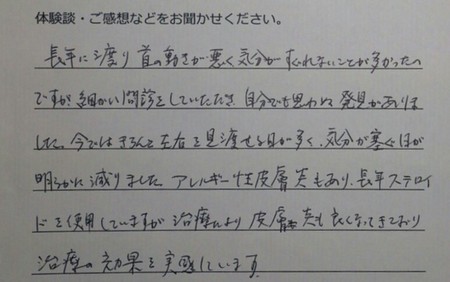 体験談・ご感想などをお聞かせください。
長年に渡り首の動きが悪く気分がすぐれないことが多かったの
ですが細かい問診をしていただき自分でも思わぬ発見がありま
した。今ではきちんと左右を見渡せる日が多く、気分が塞ぐ日が
明らかに減りました。アレルギー性皮膚炎もあり、長年ステロイ
ドを使用していますが治療により皮膚炎も良くなってきており
治療の効果を実感しています。